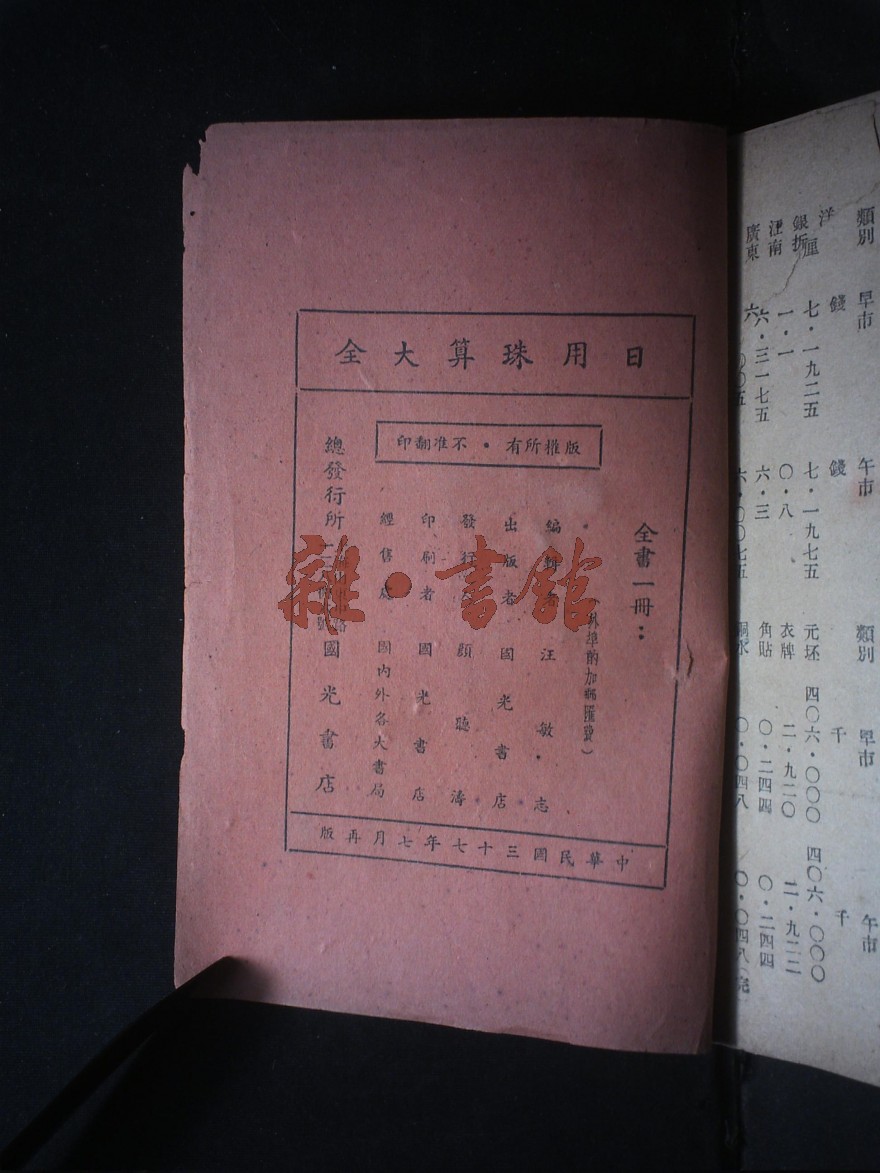 日用珠算大全
版權所有・不准翻印
全書一冊：
（外埠酌加郵匯費）
編輯者 汪敏志
出版者 國光書店
發行 顧聽濤
印刷者 國光書店
經售處 國內外各大書局
總發行所 國光書店
中華民國三十七年七月再版
雜・書館
類別 早市 午市 類別 早市 午市
洋厘 錢 七・一九二五 錢 七・一九七五 元坯 千 四〇六・〇〇〇 千 四〇六・〇〇〇
銀折 一・一 〇・八 衣牌 二・九二〇 二・九二二
江南 六・三一七五 六・三 角貼 〇・二四四 〇・二四四
廣東 六 〇〇五 六・〇〇七五 〇・〇四八 〇・〇四八（完